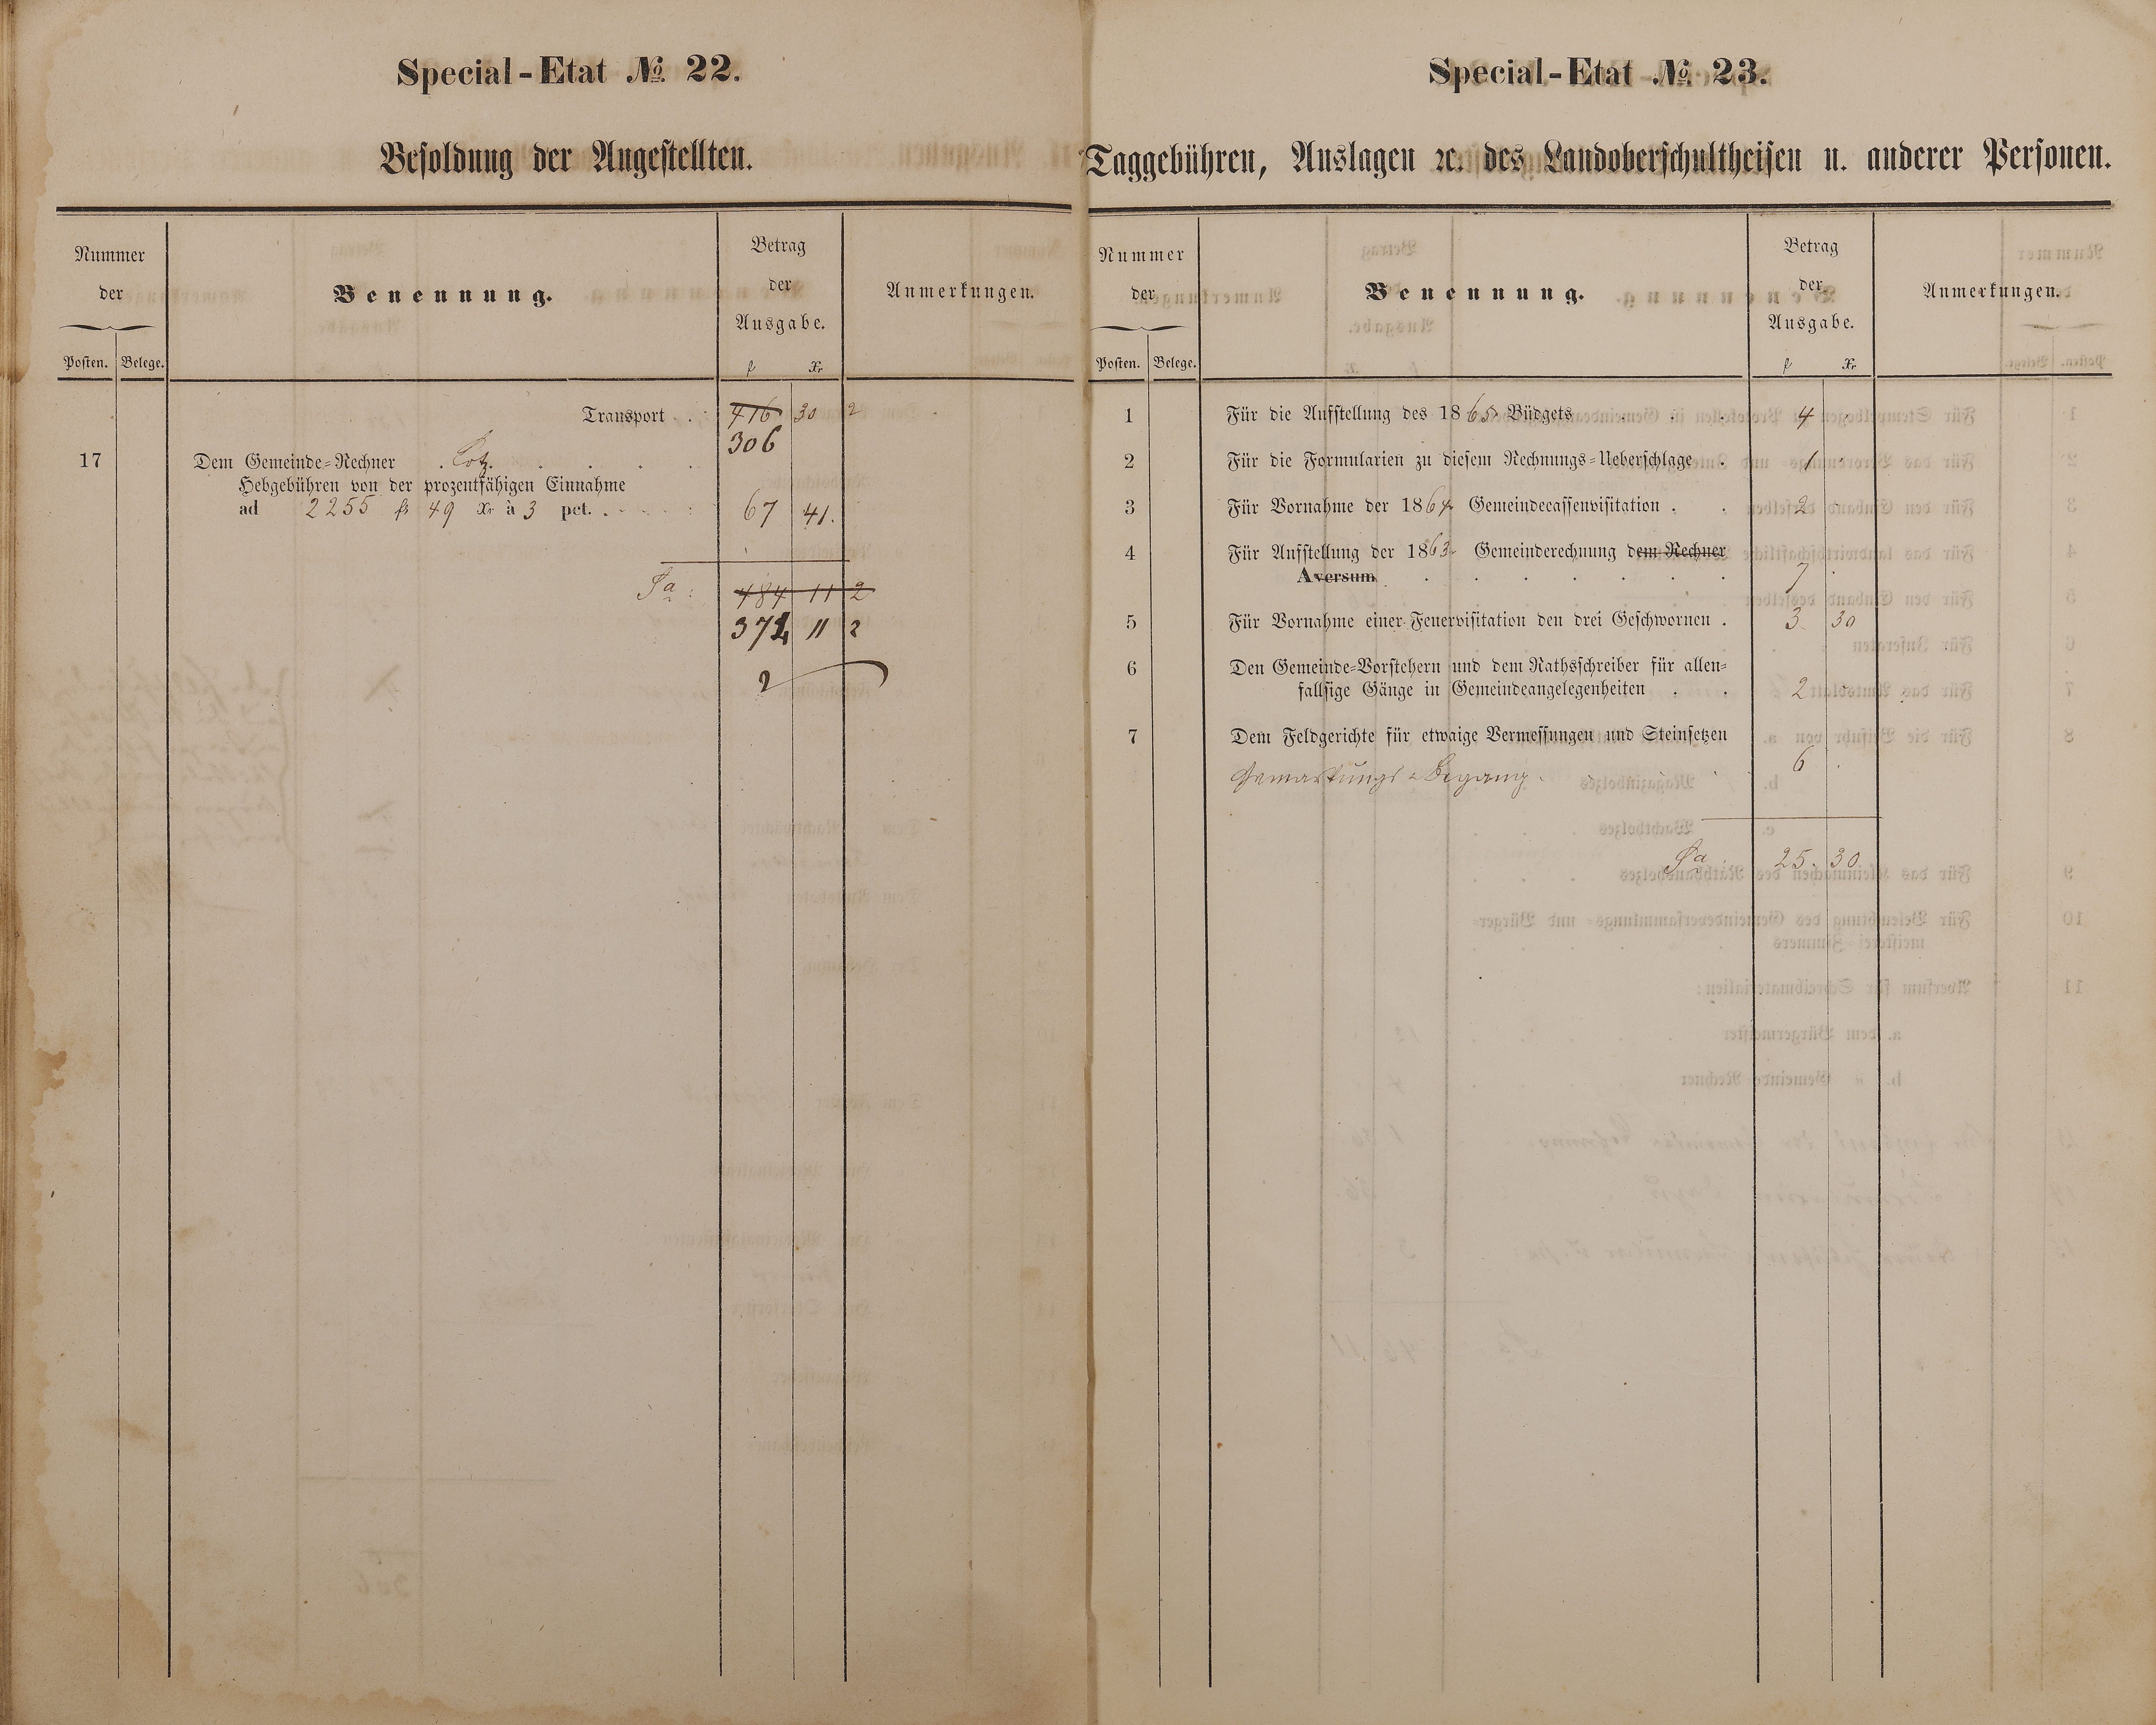 Special-Etat No. 22.
Besoldung der Angestellten.
Nummer
der
Posten. Belege.
Benennung.
Betrag
der
Ausgabe.
f Xr
Anmerkungen.
Transport . 416 30 2
306
17 Dem Gemeinde-Rechner . Lotz. . . . .
Hebgebühren von der prozentfähigen Einnahme
ad 2255 f 49 Xr à 3 pct. . 67 41.
Sa: 484 11 2
374 11 2
2
Special-Etat No. 23.
Taggebühren, Auslagen ꝛc. des Landoberschultheisen u. anderer Personen.
Nummer
der
Posten. Belege.
Benennung.
Betrag
der
Ausgabe.
f Xr
Anmerkungen.
1 Für die Aufstellung des 1865r Büdgets . . . 4 .
2 Für die Formularien zu diesem Rechnungs-Ueberschlage . 1 .
3 Für Vornahme der 1864r Gemeindecassenvisitation . . 2 .
4 Für Aufstellung der 1863r Gemeinderechnung dem Rechner
Aversum . . . . . . 7 .
5 Für Vornahme einer Feuervisitation den drei Geschwornen . 3. 30
6 Den Gemeinde-Vorstehern und dem Rathsschreiber für allen-
fallsige Gänge in Gemeindeangelegenheiten . . 2 .
7 Dem Feldgerichte für etwaige Vermessungen und Steinsetzen
Gemarkungs-Begang. . . . 6 .
Sa. 25. 30.